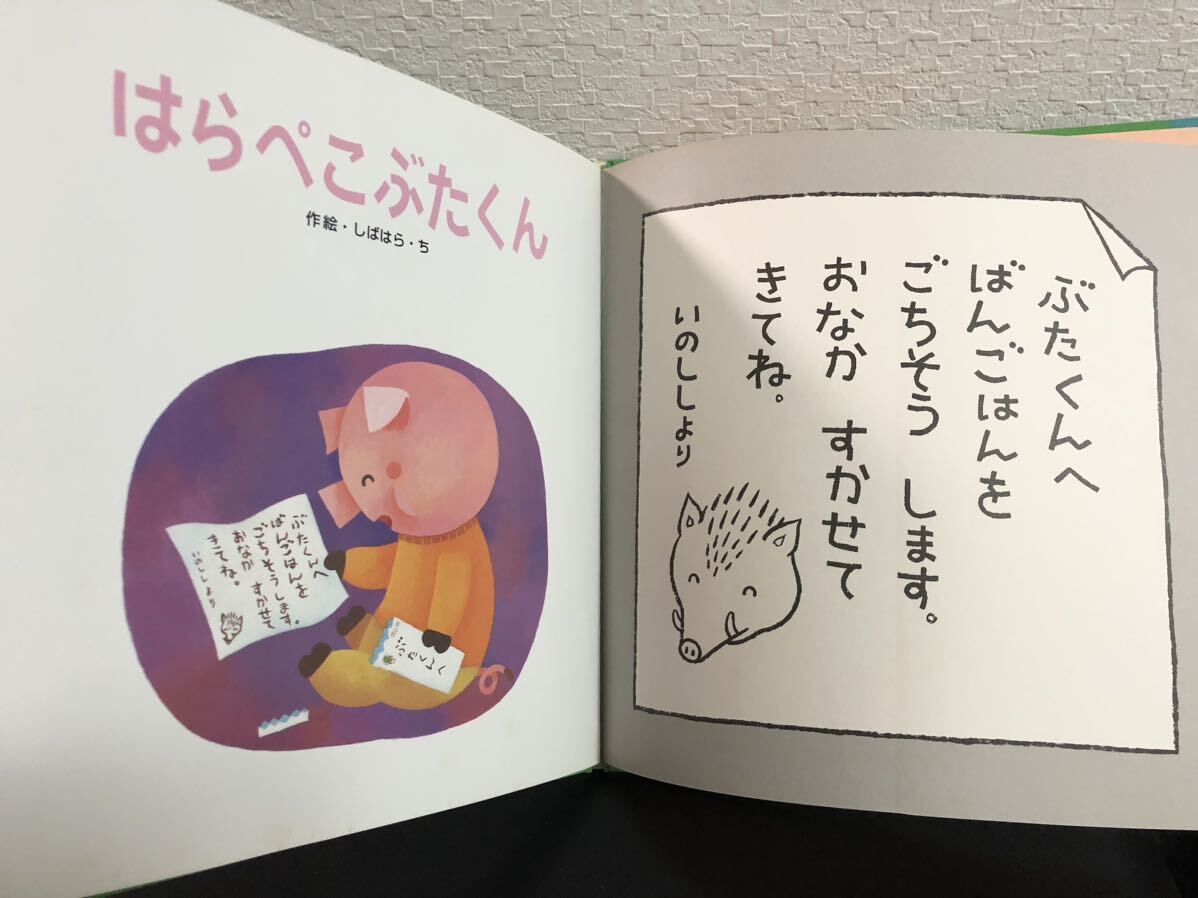 はらぺこぶたくん
作絵・しばはら・ち
ぶたくんへ
ばんごはんを
ごちそうします。
おなか すかせて
きてね。
いのししより
ぶたくんへ
ばんごはんを
ごちそう します。
おなか すかせて
きてね。
いのししより